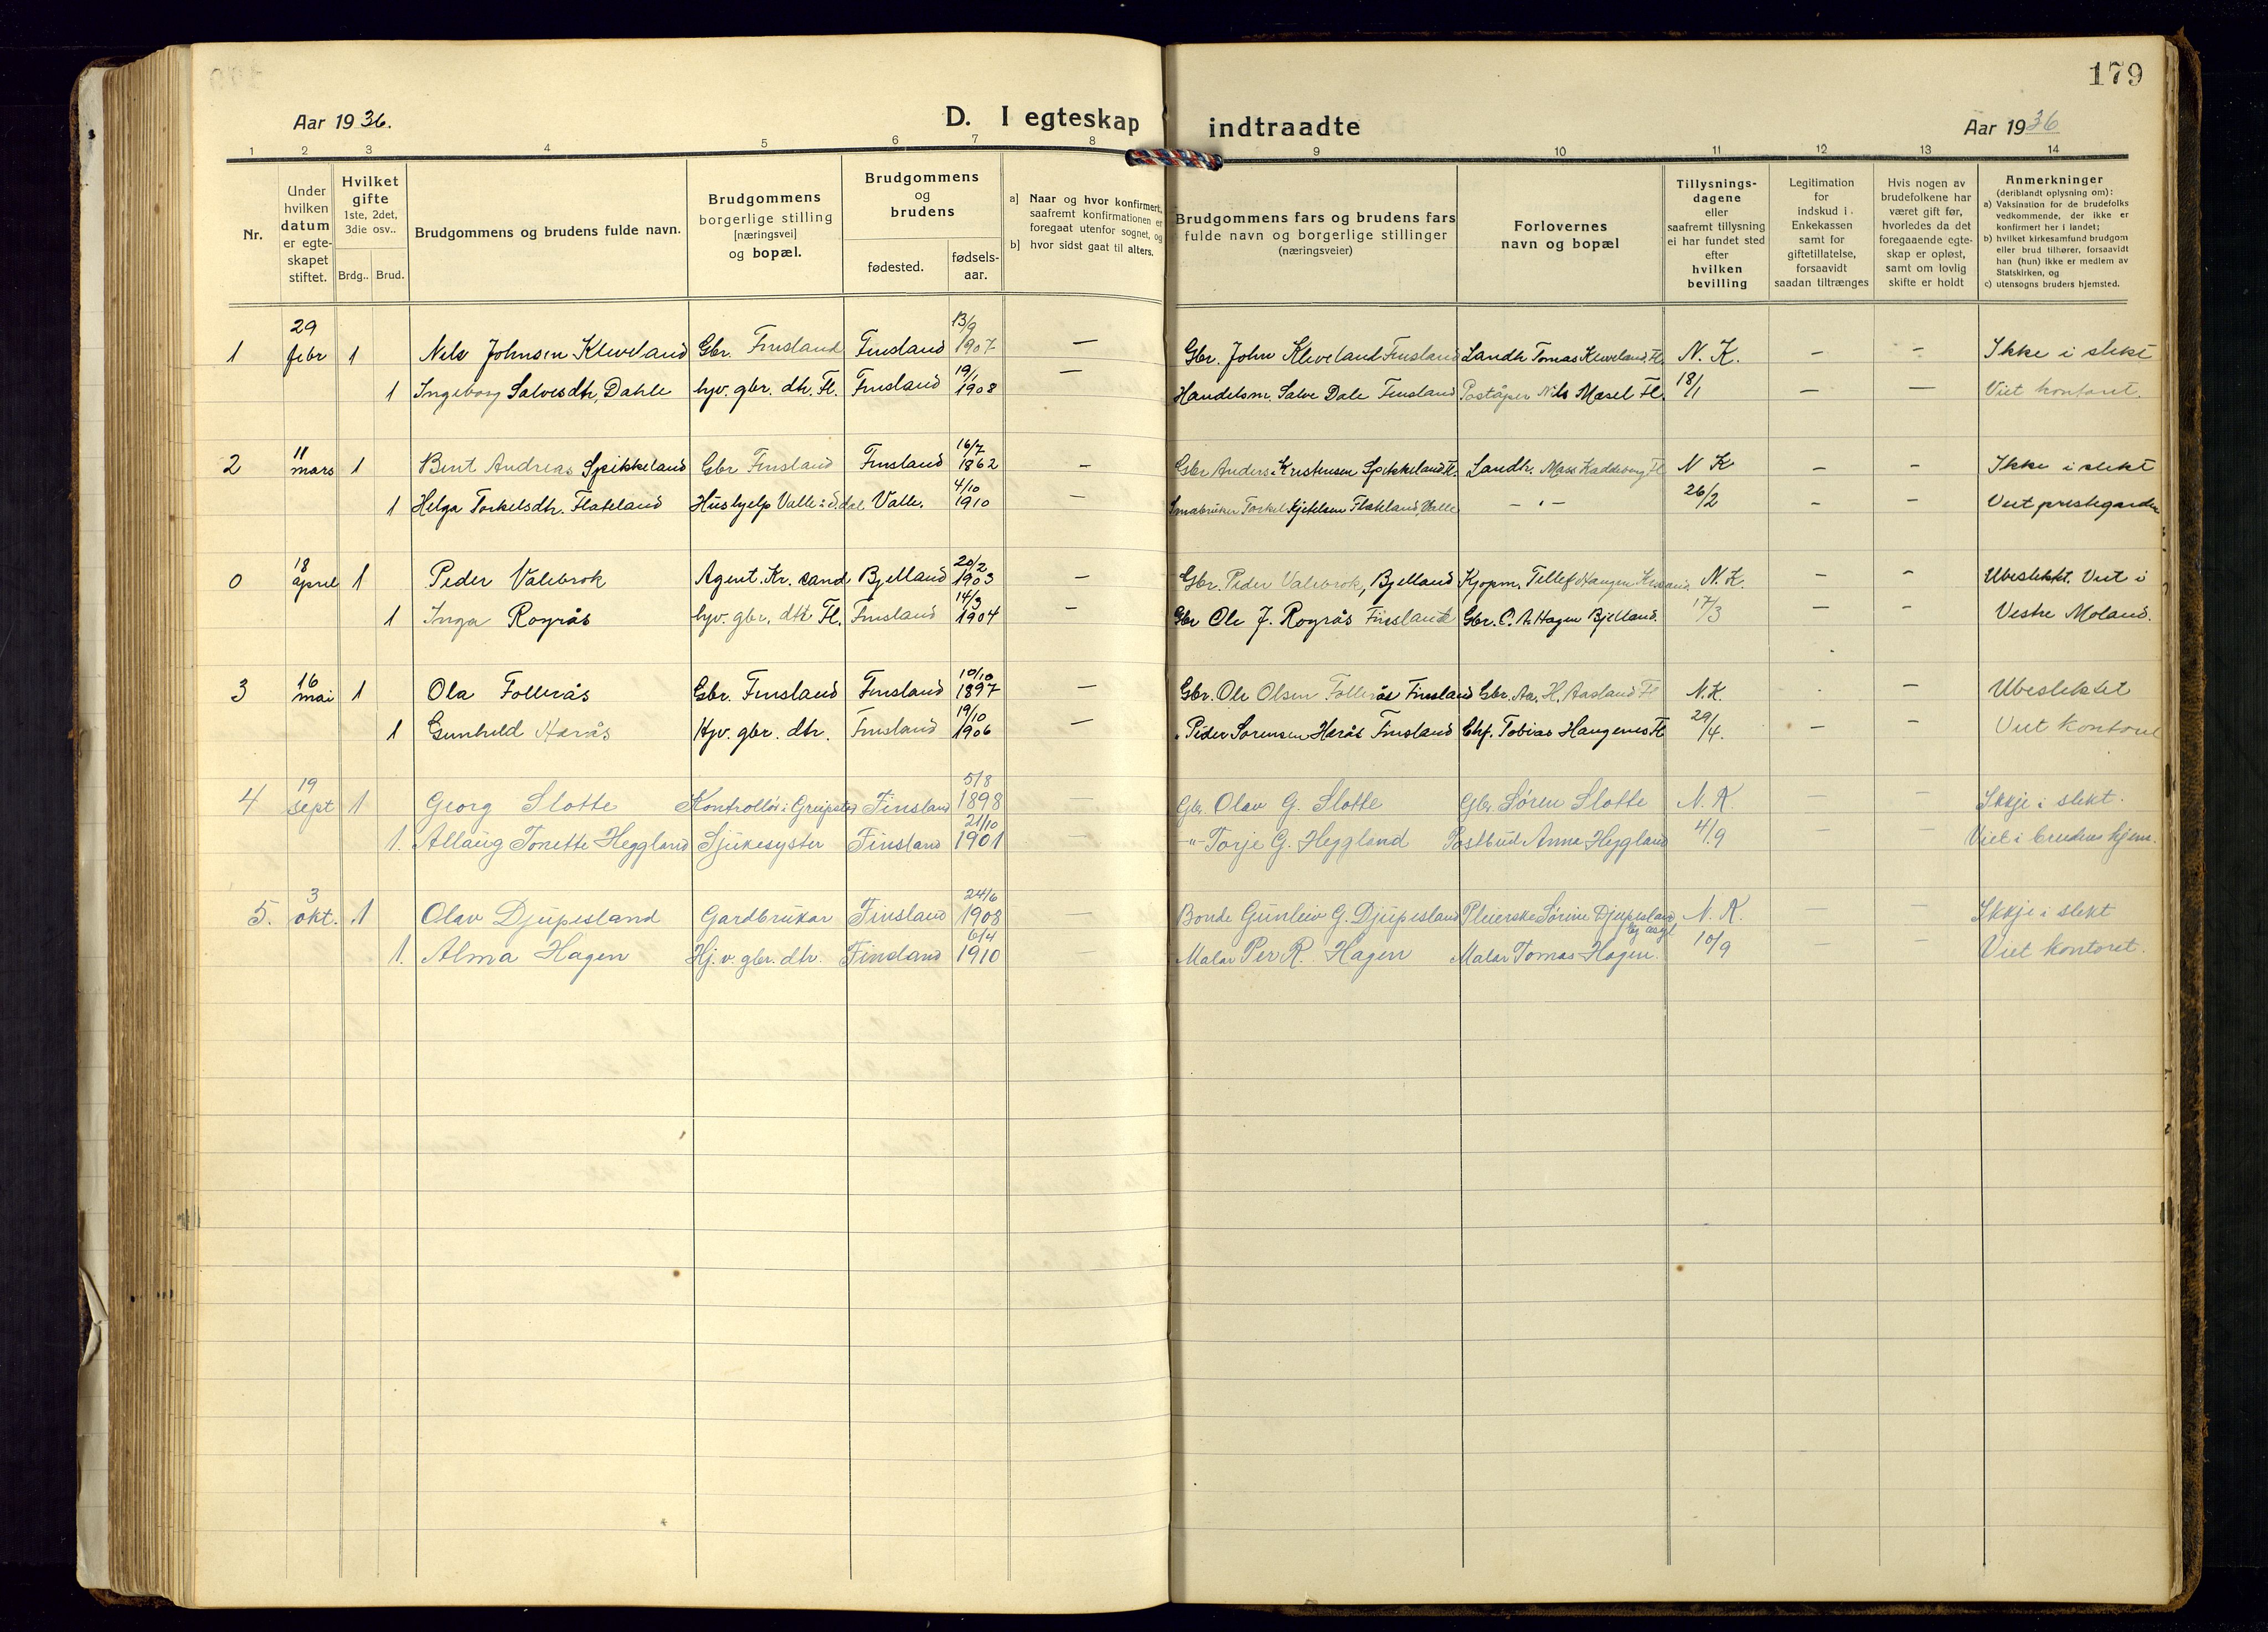 179
Aar 1936.
D. I egteskap indtraadte
Aar 1936
1 2 3 4 5 6 7 8 9 10 11 12 13 14
Nr.
Under hvilken datum er egte-skapet stiftet.
Hvilket gifte 1ste, 2det, 3die osv..
Brdg.. Brud.
Brudgommens og brudens fulde navn.
Brudgommens borgerlige stilling [næringsvei] og bopæl.
Brudgommens og brudens
fødested.
fødsels-aar.
a] Naar og hvor konfirmert, saafremt konfirmationen er foregaat utenfor sognet, og
b] hvor sidst gaat til alters.
Brudgommens fars og brudens fars fulde navn og borgerlige stillinger (næringsveier)
Forlovernes navn og bopæl
Tillysnings-dagene eller saafremt tillysning ei har fundet sted efter hvilken bevilling
Legitimation for indskud i Enkekassen samt for giftetillatelse, forsaavidt saadan tiltrænges
Hvis nogen av brudefolkene har været gift før, hvorledes da det foregaaende egte-skap er opløst, samt om lovlig skifte er holdt
Anmerkninger (deriblandt oplysning om):
a) Vaksination for de brudefolks vedkommende, der ikke er konfirmert her i landet;
b) hvilket kirkesamfund brudgom eller brud tilhører, forsaavidt han (hun) ikke er medlem av Statskirken, og
c) utensogns bruders hjemsted.
1 29 febr 1 Nils Johnsen Kleveland Gbr. Finsland Finsland 13/9 1907 — Gbr. John Kleveland Finsland Landh Tomas Kleveland Fl. N. K. — — Ikke i slekt
1 Ingeborg Salvesdtr. Dahle hjv. gbr. dtr. Fl. Finsland 19/1 1908 — Handelsm. Salve Dale Finsland Poståpner Nils Mæsel Fl. 18/1 — — Viet kontoret.
2 11 mars 1 Bent Andreas Spikkeland Gbr Finsland Finsland 16/7 1862 — Gbr Anders Kristensen Spikkeland Fl. Landh. Mass Kaddeberg Fl N K — — Ikke i slekt
1 Helga Torkelsdtr. Flateland Hushjelp Valle i S.dal Valle. 4/10 1910 — Småbruker Torkel Kjetelsen Flateland, Valle — " — 26/2 — — Viet prestegarden
0 18 april 1 Peder Valebrok Agent. Kr. sand Bjelland 20/2 1903 — Gbr. Peder Valebrok, Bjelland Kjøpm. Tellef Haugen N. K. — — Ubeslektet. Viet i
1 Inga Rogrås hjv. gbr. dtr Fl. Finsland 14/3 1904 — Gbr Ole J. Rogrås Finsland Gbr. O. A. Hagen Bjelland. 17/3 — — Vestre Moland.
3 16 mai 1 Ola Follerås Gbr. Finsland Finsland 10/10 1897 — Gbr. Ole Olsen Follerås Finsland Gbr. Aa. H. Aasland Fl N. K. — Ubeslektet
1 Gunhild Herås Hjv. gbr. dtr. Finsland 19/10 1906 — " Peder Sørensen Herås Finsland Chf. Tobias Haugenes Fl 29/4. — — Viet kontoret
4 19 sept 1 Georg Slotte Kontrollør i Greipstad Finsland 5/8 1898 — Gbr. Olav G. Slotte Gbr. Søren Slotte N. K. — — Ikkje i slekt.
1. Allaug Tonette Heggland Sjukesyster Finsland 21/10 1901 — — " — Torje G. Heggland Postbud Anna Heggland 4/9 — — Viet i brudens hjem.
5. 3 okt. 1 Olav Djupesland Gardbrukar Finsland 24/6 1908 — Bonde Gunleiv G. Djupesland Pleierske Sørine Djupesland N. K. — — Ikkje i slekt
1. Alma Hagen Hj. v. gbr. dtr. Finsland 6/4 1910 — Malar Per R. Hagen Malar Tomas Hagen. 10/9 — — Viet kontoret.